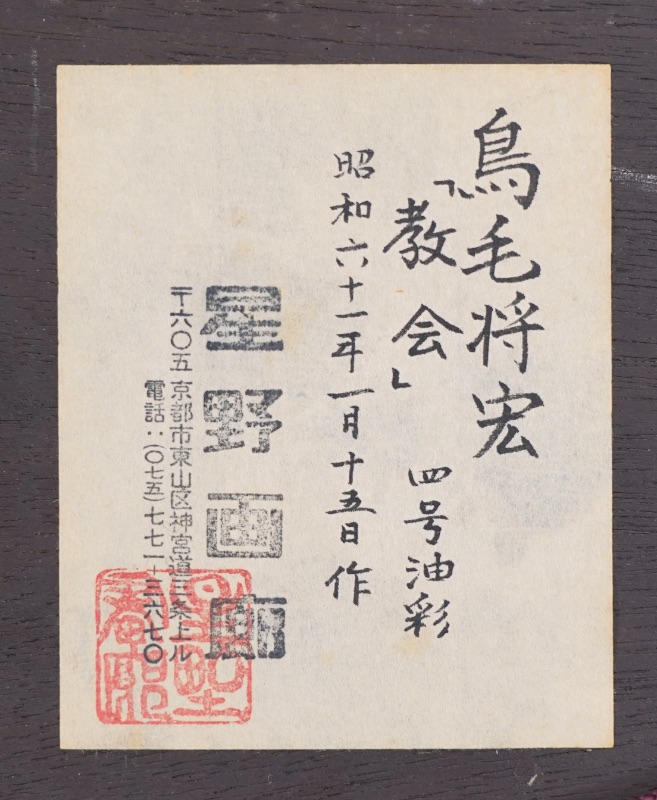 鳥毛将宏
「教会」
四号油彩
昭和六十一年一月十五日作
星野画廊
〒六〇五 京都市東山区神宮道三条上ル
電話:(〇七五)七七一-三六七〇